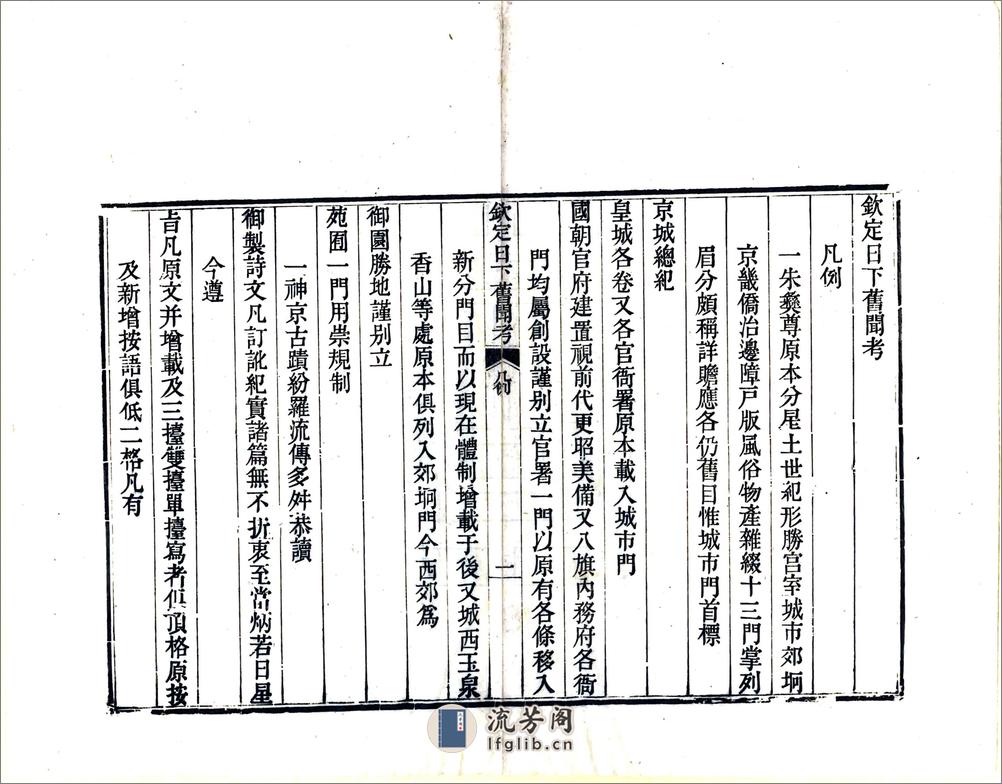 欽定日下舊聞考
凡例
一朱彝尊原本分星土世紀形勝宮室城市郊坰
京畿僑治邊障戸版風俗物產雜綴十三門掌列
眉分頗稱詳贍應各仍舊目惟城市門首標
京城總紀
皇城各卷又各官衙署原本載入城市門
國朝官府建置視前代更昭美備又八旗內務府各衙
門均屬創設謹别立官署一門以原有各條移入
欽定日下舊聞考 凡例 一
新分門目而以現在體制增載于後又城西玉泉
香山等處原本俱列入郊坰門今西郊爲
御園勝地謹别立
苑囿一門用崇規制
一神京古蹟紛羅流傳多舛恭讀
御製詩文凡訂訛紀實諸篇無不折衷至當炳若日星
今遵
旨凡原文并增載及三擡雙擡單擡寫者俱頂格原按
及新增按語俱低二格凡有
流芳阁
lfglib.cn